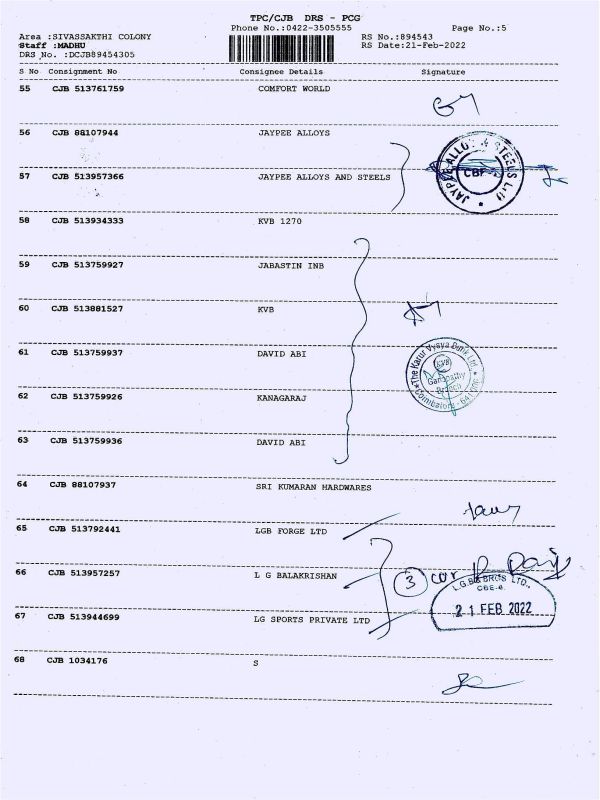 TPC/CJB DRS - PCG
Phone No.:0422-3505555 Page No.:5
Area :SIVASSAKTHI COLONY RS No.:894543
Staff :MADHU RS Date:21-Feb-2022
DRS No. :DCJB89454305
S No Consignment No Consignee Details Signature
55 CJB 513761759 COMFORT WORLD
56 CJB 88107944 JAYPEE ALLOYS
JAYPEE ALLOYS & STEELS
CBE
57 CJB 513957366 JAYPEE ALLOYS AND STEELS
58 CJB 513934333 KVB 1270
59 CJB 513759927 JABASTIN INB
60 CJB 513881527 KVB
61 CJB 513759937 DAVID ABI
The Karur Vysya Bank Ltd.
KVB
Ganapathy
Branch
Coimbatore - 641 006
62 CJB 513759926 KANAGARAJ
63 CJB 513759936 DAVID ABI
64 CJB 88107937 SRI KUMARAN HARDWARES
65 CJB 513792441 LGB FORGE LTD
66 CJB 513957257 L G BALAKRISHAN
3
L.G.B & BROS LTD.,
CBE-6.
21 FEB 2022
67 CJB 513944699 LG SPORTS PRIVATE LTD
68 CJB 1034176 S